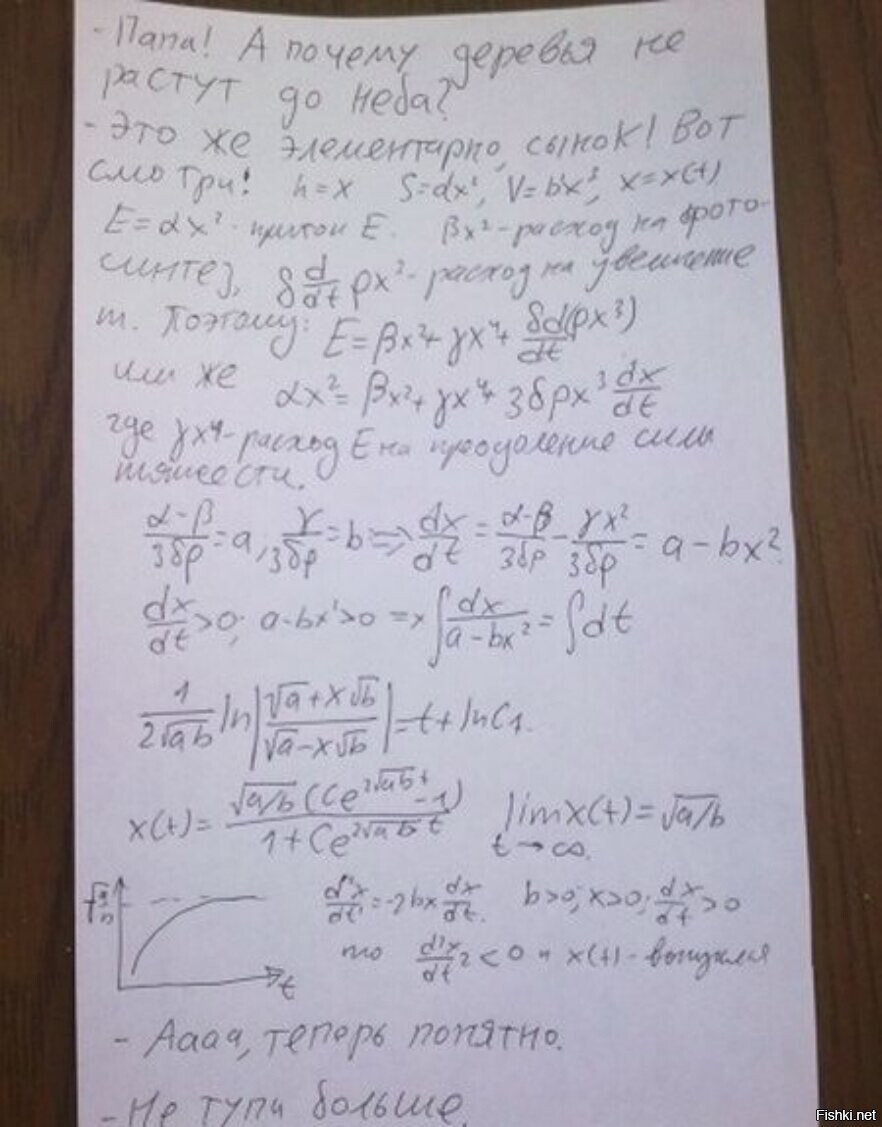 - Папа! А почему деревья не
растут до неба?
- Это же элементарно, сынок! Вот
смотри! h=x S=αx², V=bx³, x=x(t)
E=αx² - приток E. βx² - расход на фото-
синтез, δ d/dt ρx³ - расход на увеличение
m. Поэтому: E=βx²+γx⁴+ δd(ρx³)/dt
или же αx²=βx²+γx⁴+3δρx³ dx/dt
где γx⁴ - расход E на преодоление силы
тяжести.
(α-β)/3δρ = a; γ/3δρ = b => dx/dt = (α-β)/3δρ - γx²/3δρ = a - bx².
dx/dt>0; a-bx²>0 => ∫ dx/(a-bx²) = ∫dt
1/(2√ab) ln|(√a+x√b)/(√a-x√b)| = t+lnC₁.
x(t) = √a/b (Ce^(2√ab t) -1)/(1+Ce^(2√ab t)) lim x(t) = √a/b
t→∞.
√a/b d²x/dt² = -2bx dx/dt. b>0; x>0; dx/dt>0
t то d²x/dt² <0 и x(t) - выпуклая
- Аааа, теперь понятно.
- Не тупи больше.
Fishki.net